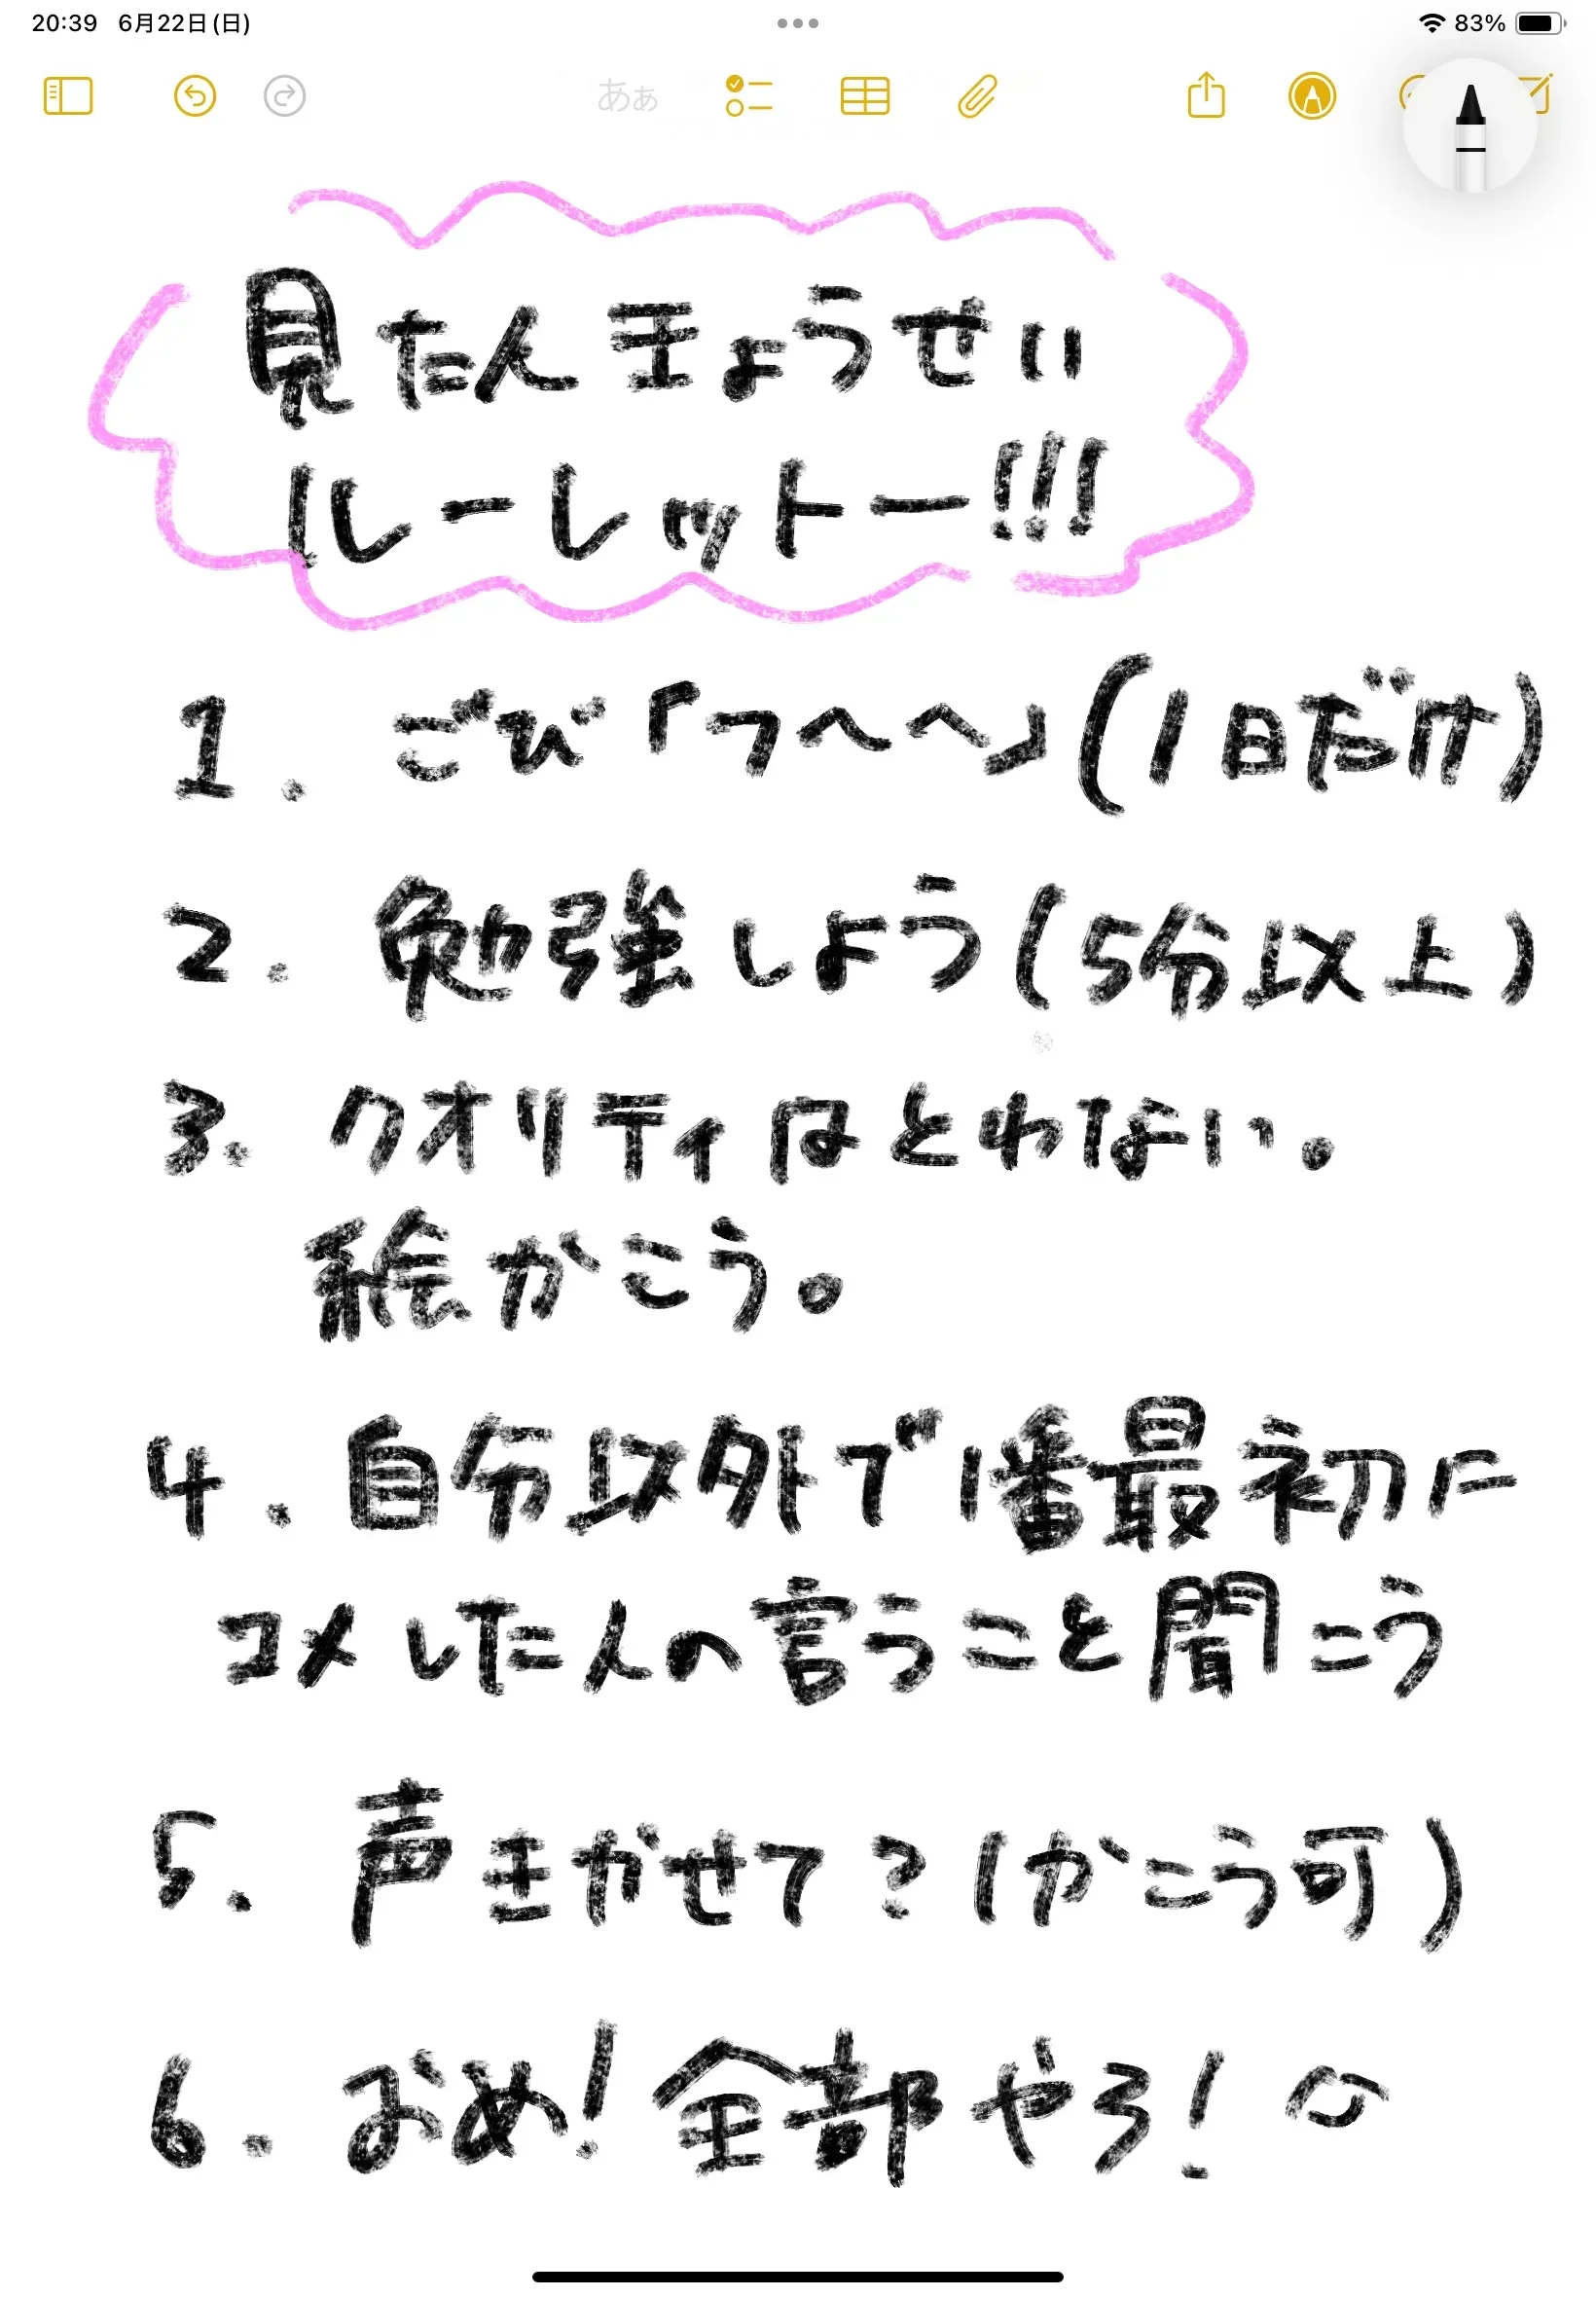 20:39 6月22日(日)
83%
あぁ
見た人きょうせい
ルーレットー!!!
1. ごび「フヘヘ」(1日だけ)
2. 勉強しよう(5分以上)
3. クオリティはとわない。
絵かこう。
4. 自分以外で1番最初に
コメした人の言うこと聞こう
5. 声きかせて?(かこう可)
6. おめ!全部やろ!